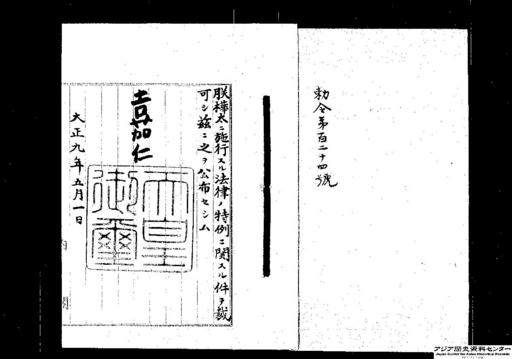 勅令第百二十四號
朕樺太ニ施行スル法律ノ特例ニ関スル件ヲ裁
可シ茲ニ之ヲ公布セシム
嘉仁
天皇
御璽
大正九年五月一日
内閣
アジア歴史資料センター
Japan Center for Asian Historical Records